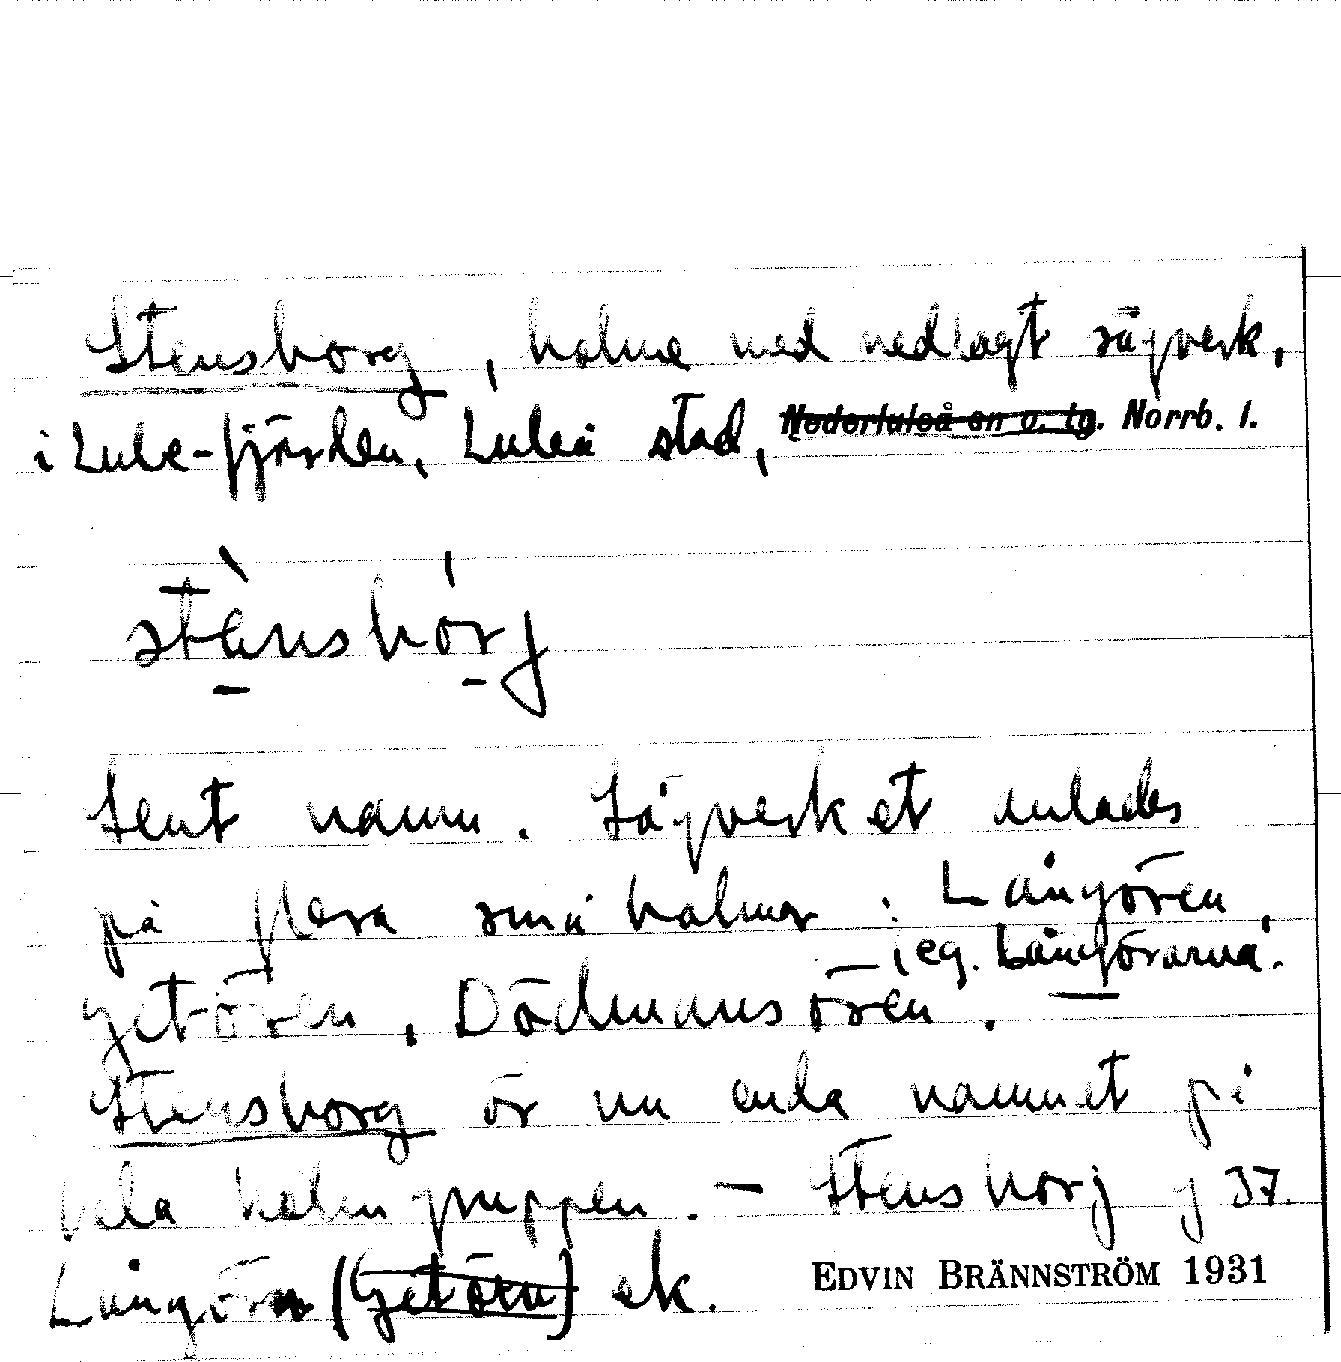 Stensborg, holme med nedlagt sågverk,
i Lule-fjärden, Luleå stad, Nederluleå sn o. tg. Norrb. l.
stènsbórj
Sent namn. Sågverket anlades
på flera små holmar: Långören,
eg. Långörarna.
Getören, Dödmansören. —
Stensborg är nu enda namnet på
hela holmgruppen. — Stensborj g 37.
Långörn (Getörn) ek.
EDVIN BRÄNNSTRÖM 1931